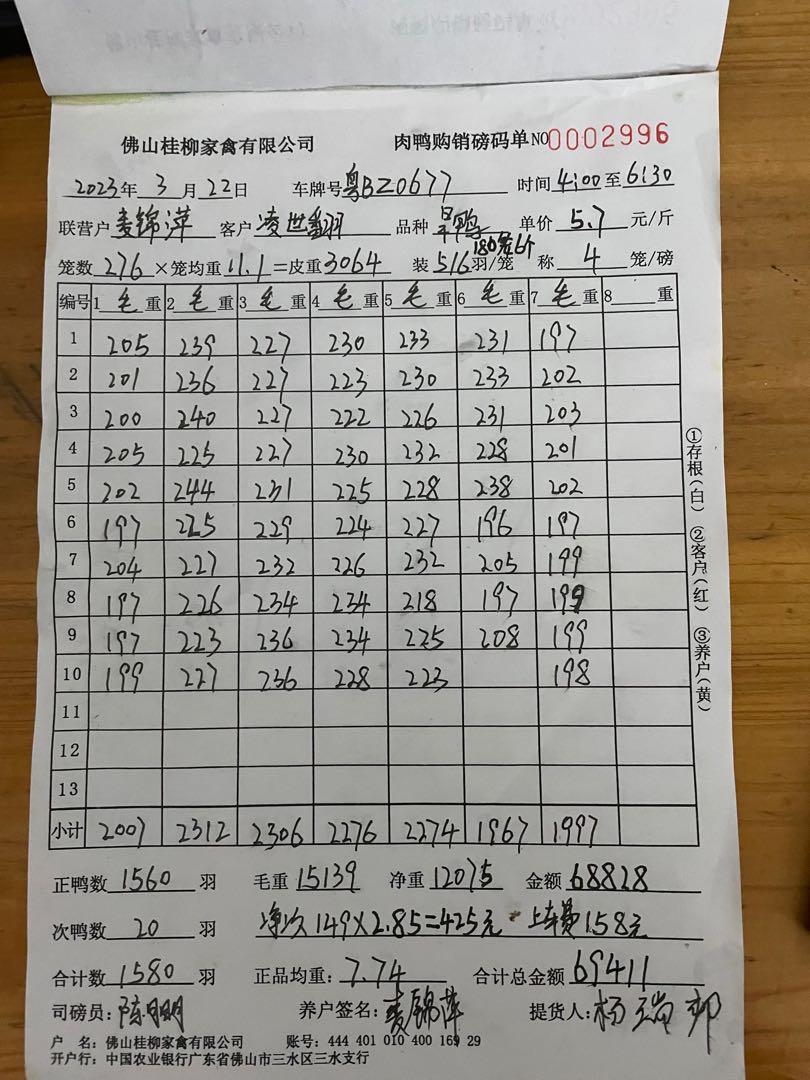 佛山桂柳家禽有限公司 肉鸭购销磅码单 NO 0002996
2023年 3月 22日 车牌号 粤BZ0677 时间 4:00 至 6:30
联营户 麦锦萍 客户 凌世翻 品种 鸭 单价 5.7 元/斤
180 6个
笼数 276 ×笼均重 11.1 =皮重 3064 装 516 羽/笼 称 4 笼/磅
编号 1 毛 重 2 毛 重 3 毛 重 4 毛 重 5 毛 重 6 毛 重 7 毛 重 8 重
1 205 239 227 230 233 231 197
2 201 236 227 223 230 233 202
3 200 240 227 222 226 231 203
4 205 225 227 230 232 228 201
5 202 244 231 225 228 238 202
6 197 225 229 224 227 196 197
7 204 227 232 226 232 205 199
8 197 226 234 234 218 197 199
9 197 223 236 234 225 208 199
10 199 227 236 228 223 198
11
12
13
小计 2007 2312 2306 2276 2274 1967 1997
①存根(白) ②客户(红) ③养户(黄)
正鸭数 1560 羽 毛重 15139 净重 12075 金额 68828
次鸭数 20 羽 净次 149×2.85=425元 上车费158元
合计数 1580 羽 正品均重: 7.74 合计总金额 69411
司磅员: 陈明 养户签名: 麦锦萍 提货人: 杨瑞邦
户 名: 佛山桂柳家禽有限公司 账号: 444 401 010 400 169 29
开户行: 中国农业银行广东省佛山市三水区三水支行